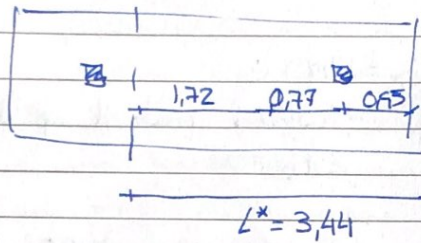 1,72 0,77 0,95
L* = 3,44